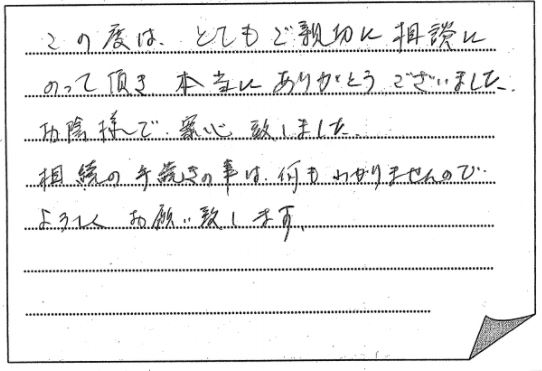 この度は、とてもご親切に相談に
のって頂き本当にありがとうございました。
お陰様で安心致しました。
相続の手続きの事は、何もわかりませんので
よろしくお願い致します。